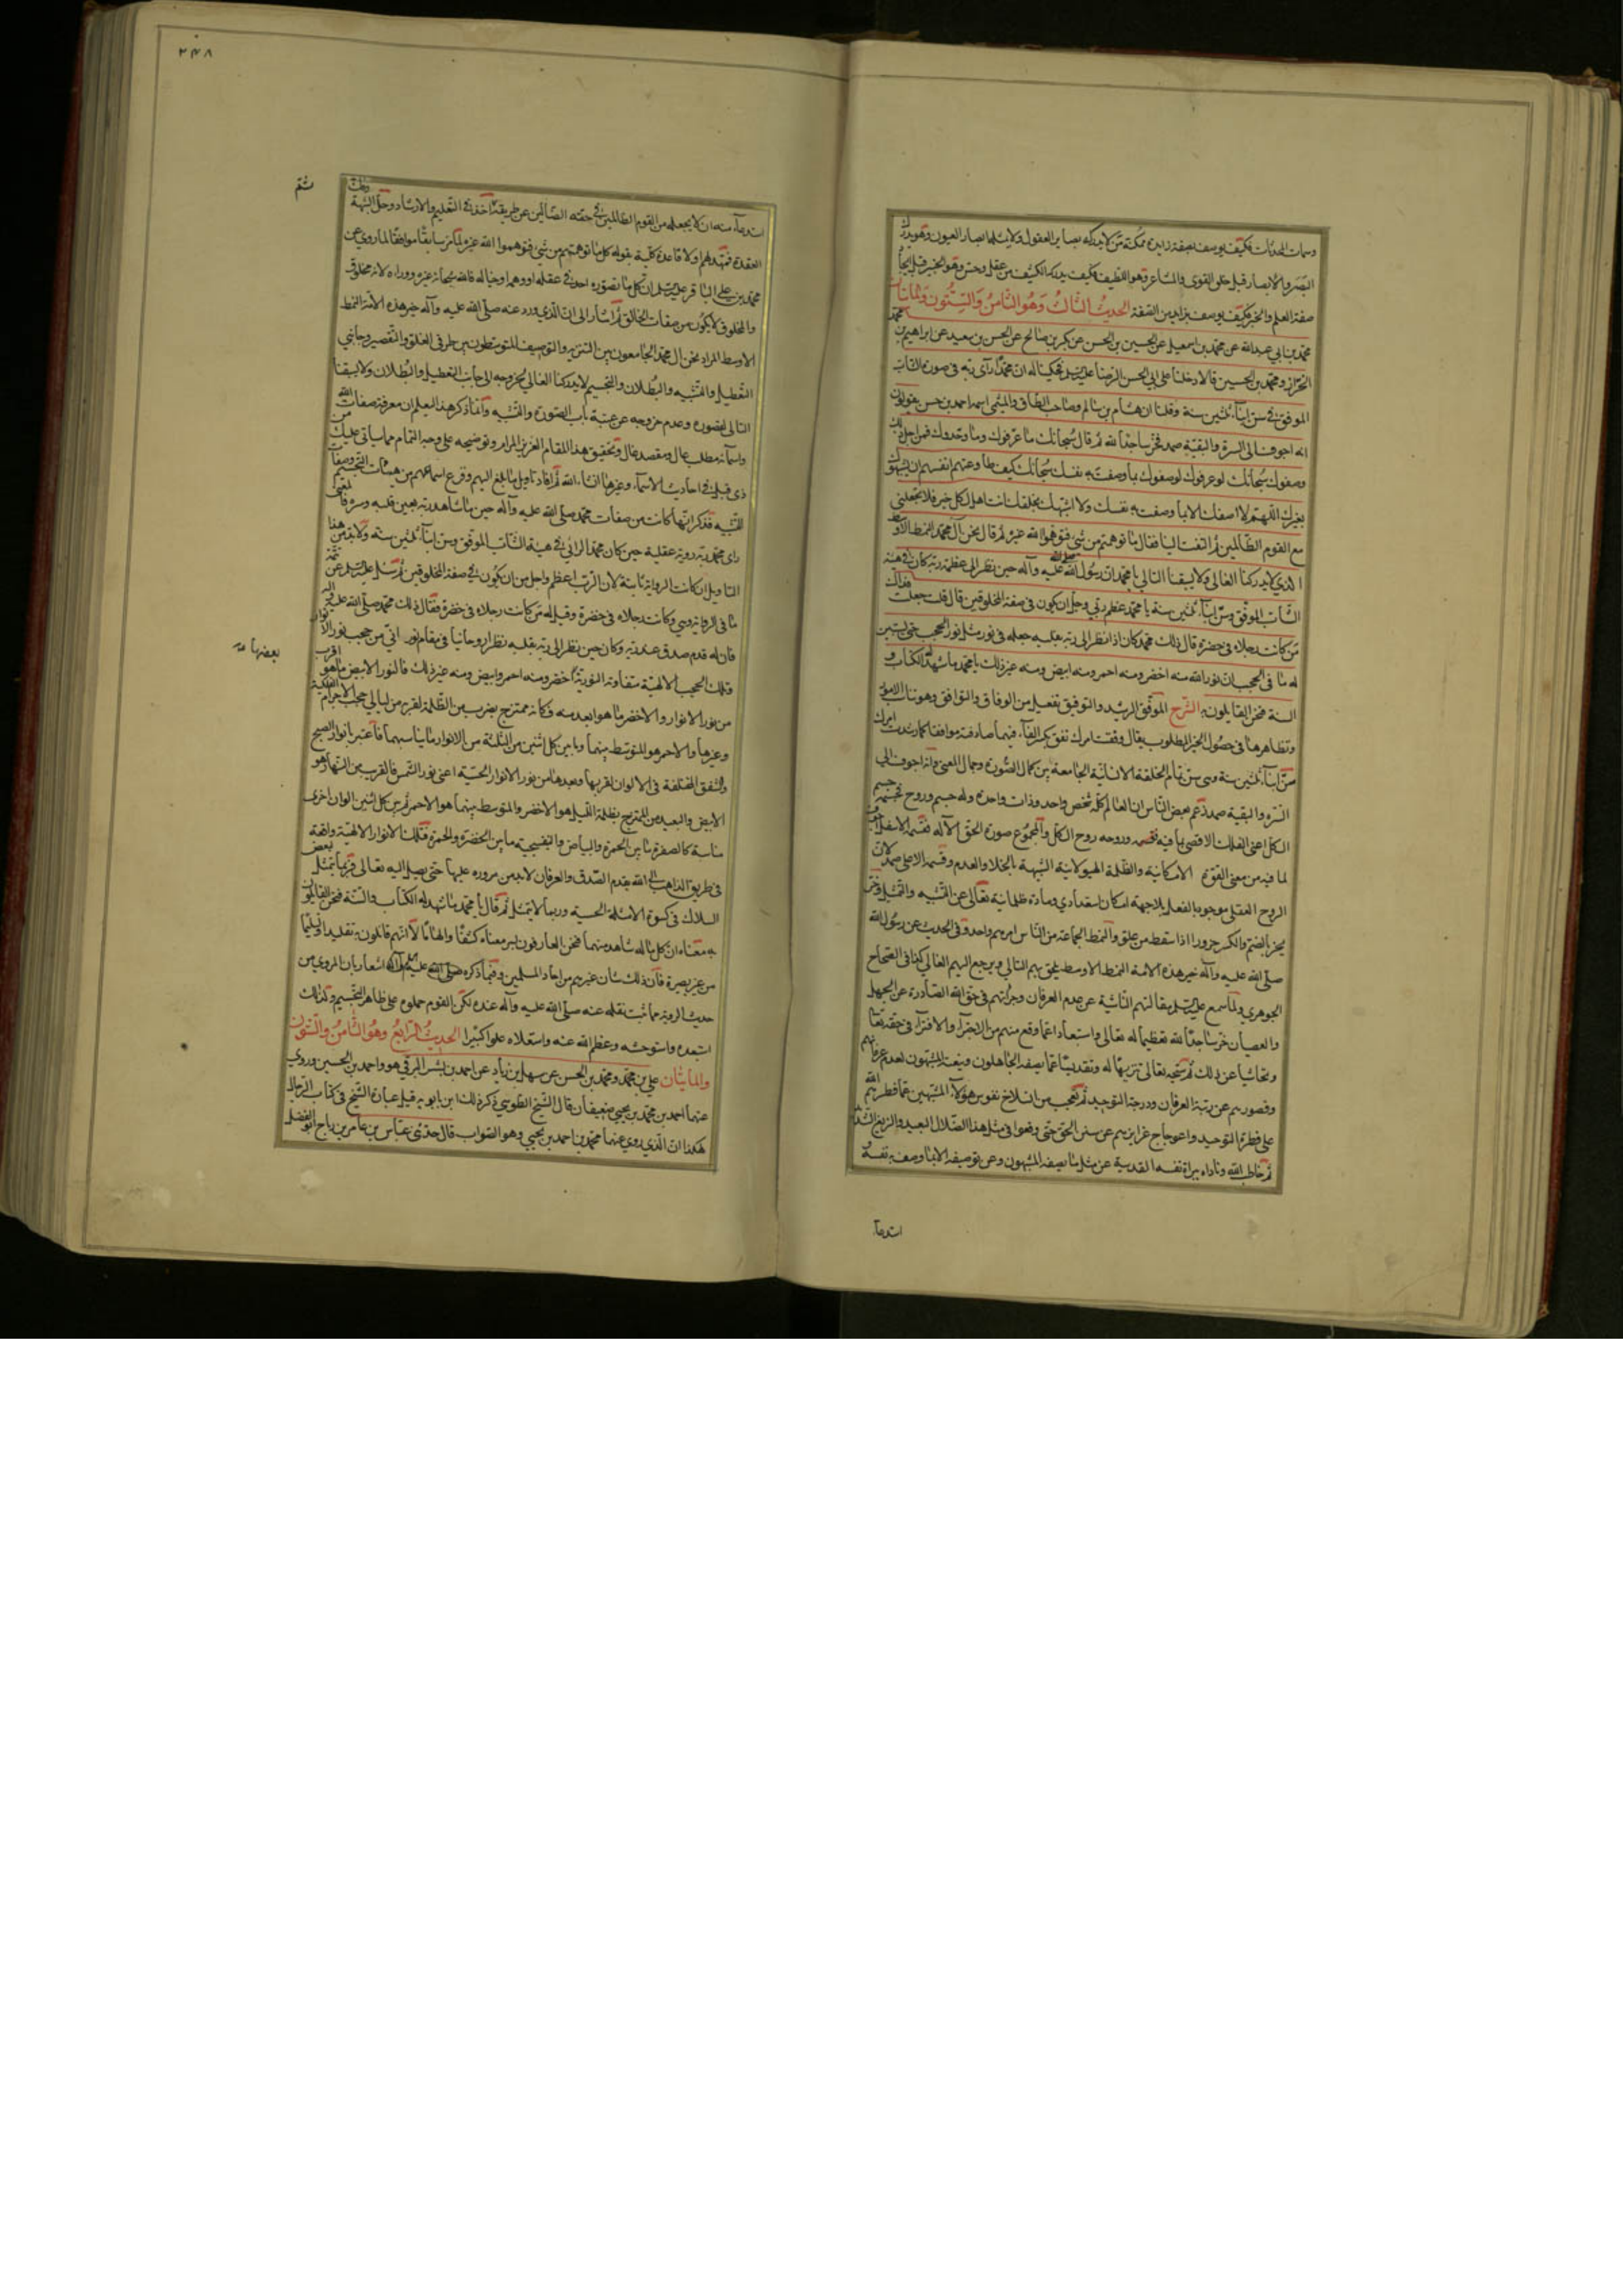 وسمات الحدثات فكيف يوصف بصفة زايدة ممكنة من لا يدركه بصاير العقول ولا يناله ابصار العيون وهو يدرك
البصر والابصار قبل خلق القوى والمشاعر وهو اللطيف فكيف يدركه الكشف من عقل وحس وهو الخبير قبل ايجاد
صفة العلم والخبر فكيف يوصف بزايد من الصفة الحديث الثالث وهو الثامن والستون والمائتان
محمد بن ابي عبدالله عن محمد بن اسمعيل عن الحسين بن الحسن عن بكر بن صالح عن الحسن بن سعيد عن ابراهيم بن محمد
الخزاز ومحمد بن الحسين قالا دخلنا على ابي الحسن الرضا عليه السلم فحكينا له ان محمدا رآى ربه في صورة الشاب
الموفق في سن ابناء ثلثين سنة وقلنا ان هشام بن سالم وصاحب الطاق والميثمي اسمه احمد بن حسن يقولون
انه اجوف الى السرة والبقية صمد فخر ساجدا لله ثم قال سبحانك ما عرفوك وما وحدوك فمن اجل ذلك
وصفوك سبحانك لو عرفوك لوصفوك بما وصفت به نفسك سبحانك كيف طاوعتهم انفسهم ان يشبهوك
بغيرك اللهم لا اصفك الا بما وصفت به نفسك ولا اشبهك بخلقك انت اهل لكل خير فلا تجعلني
مع القوم الظالمين ثم التفت الينا فقال ما توهمتم من شئ فتوهموا الله غيره ثم قال نحن آل محمد النمط الاوسط
الذي لا يدركنا الغالي ولا يسبقنا التالي يا محمد ان رسول الله صلى الله عليه وآله حين نظر الى عظمة ربه كان في هيئة
الشاب الموفق وسن ابناء ثلثين سنة يا محمد عظم ربي وجل ان يكون في صفة المخلوقين قال قلت جعلت فداك
من كانت رجلاه في خضرة قال ذلك محمد كان اذا نظر الى ربه بقلبه جعله في نور مثل نور الحجب حتى يستبين
له ما في الحجب ان نور الله منه اخضر ومنه احمر ومنه ابيض ومنه غير ذلك يا محمد ما شهد له الكتاب و
السنة فنحن القايلون به الشرح الموفق الرشيد والتوفيق تفعيل من الوفاق والتوافق وهو تناسب الامور
وتظاهرها في حصول الخير المطلوب يقال وفقت امرك تفق بكسر الفاء فيهما صادفته موافقا كما رشدت امرك
سن ابناء ثلثين سنة وهي سن تمام الخلقة الانسانية الجامعة بين كمال الصورة وجمال المعنى انه اجوف الى
السرة والبقية صمد زعم بعض الناس ان العالم كله شخص واحد وذات واحدة وله جسم وروح فجسمه جسم
الكل اعني الفلك الاقصى بما فيه وروحه روح الكل والمجموع صورة الحق الاله فقسمه الاسفل اجوف
لما فيه من معنى القوة الامكانية والظلمة الهيولانية الشبيهة بالخلاء والعدم وقسمه الاعلى صمد لان
الروح العقلي موجود بالفعل بلا جهة امكان استعدادي ومادة ظلمانية تعالى عن التشبيه والتمثيل وخر
يخر بالضم والكسر خرورا اذا سقط من علو والنمط الجماعة من الناس امرهم واحد وفي الحديث عن رسول الله
صلى الله عليه وآله خير هذه الامة النمط الاوسط يلحق بهم التالي ويرجع اليهم الغالي كذا في الصحاح
الجوهري ولما سمع عليه السلم مقالتهم الناشية عن عدم العرفان وجرأتهم في حق الله الصادرة عن الجهل
والعصيان خر ساجدا لله تعظيما له تعالى واستبعادا عما وقع منهم من الاجتراء والافتراء في حقه تعالى
وتحاشيا عن ذلك ثم سبحه تعالى تنزيها له وتقديسا عما يصفه الجاهلون وينعته المشبهون لعدم عرفانهم
وقصورهم عن رتبة العرفان ودرجة التوحيد ثم تعجب من انسلاخ نفوس هؤلاء المشبهين عما فطرهم الله
على فطرة التوحيد واعوجاج غرايزهم عن سنن الحق حتى وقعوا في مثل هذا الضلال البعيد والزيغ الشديد
ثم خاطب الله وناداه ببراءة نفسه القدسية عن مثل ما يصفه المشبهون وعن توصيفه الا بما وصف به نفسه و
استدعاء
٢٤٨
استدعاء منه ان لا يجعله من القوم الظالمين في حقه الضالين عن طريقه ثم اخذ في التعليم والارشاد وحل الشبهة وفك
العقدة فمهد لهم اولا قاعدة كلية بقوله كل ما توهمتم من شئ فتوهموا الله غيره لما مر سابقا موافقا لما روي عن
محمد بن علي الباقر عليه السلم ان كل ما تصوره احد في عقله او وهمه او خياله فالله سبحانه غيره ووراءه لانه مخلوق
والمخلوق لا يكون من صفات الخالق ثم اشار الى ان الذي ورد عنه صلى الله عليه وآله خير هذه الامة النمط
الاوسط المراد نحن آل محمد الجامعون بين التنزيه والتوصيف المتوسطون بين طرفي الغلو والتقصير وجانبي
التعطيل والتشبيه والبطلان والتجسيم لا يدركنا الغالي لخروجه الى جانب التعطيل والبطلان ولا يسبقنا
التالي لقصوره وعدم خروجه عن عتبة باب الصورة والتشبيه وانما ذكر هذا ليعلم ان معرفة صفات الله
واسمائه مطلب عال ومقصد غال وتحقيق هذا المقام العزيز المرام وتوضيحه على وجه التمام مما ياتي عليك من
ذي قبل في احاديث الاسماء وغيرها ان شاء الله ثم افاد تاويل ما بلغ اليهم وقرع اسماعهم من هيئات التجسيم وصفات
التشبيه فذكر انها كانت من صفات محمد صلى الله عليه وآله حين ما شاهد ربه بعين قلبه وسره فالمعنى
راى محمد ربه رؤية عقلية حين كان محمد الرائي في هيئة الشاب الموفق وسن ابناء ثلثين سنة ولا بد من هذا
التاويل ان كانت الرواية ثابتة لان الرب اعظم واجل من ان يكون في صفة المخلوقين ثم سئل عليه السلم عن تتمة
ما في الرواية وهي وكانت رجلاه في خضرة وقيل له من كانت رجلاه في خضرة فقال ذلك محمد صلى الله عليه وآله
فان له قدم صدق عند ربه وكان حين نظر الى ربه بقلبه نظرا روحانيا في مقام نور انى من حجب نور الانوار
وتلك الحجب الالهية متفاوتة النورية اخضر ومنه احمر وابيض ومنه غير ذلك فالنور الابيض ما هو اقرب
من نور الانوار والاخضر ما هو ابعد منه فكانه ممتزج بضرب من الظلمة لقربه من ليالي حجب الاجرام الفلكية
وغيرها والاحمر هو المتوسط بينهما وما بين كل اثنين من الثلثة من الانوار ما يناسبهما فاعتبر بانوار الصبح
والشفق المختلفة في الالوان لقربها وبعدها من نور الانوار الحسية اعني نور الشمس فالقرب من النهار هو
الابيض والبعيد من الممتزج بظلمة الليل هو الاخضر والمتوسط بينهما هو الاحمر ثم بين كل اثنين الوان اخرى
مناسبة كالصفرة ما بين الحمرة والبياض والبنفسجية ما بين الخضرة والحمرة فتلك الانوار الالهية واقعة
في طريق الذاهب الى الله بقدم الصدق والعرفان لا بد من مروره عليها حتى يصل اليه تعالى فربما يتمثل لبعض
السلاك في كسوة الامثلة الحسية وربما لا يتمثل ثم قال يا محمد ما شهد له الكتاب والسنة فنحن القايلون
به معناه ان كل ما له شاهد منهما فنحن العارفون بسر معناه كشفا والهاما لا انهم قائلون به تقليدا وتسليما
من غير بصيرة فان ذلك شان غيرهم من احاد المسلمين وفيما ذكره صلى الله عليه وآله اشعار بان المروي من
حديث الرؤية مما ثبت نقله عنه صلى الله عليه وآله عنده لكن القوم حملوه على ظاهر التجسيم ولذلك
استبعده واستوحشه وعظم الله عنه واستعلاه علوا كبيرا الحديث الرابع وهو الثامن والستون
والمائتان علي بن محمد ومحمد بن الحسن عن سهل بن زياد عن احمد بن بشر البرقي هو واحمد بن الحسين وروى
عنهما احمد بن محمد بن يحيى ضعيفان قال الشيخ الطوسي ذكر ذلك ابن بابويه قيل عبارة الشيخ في كتاب الرجال
هكذا ان الذي روى عنهما محمد بن احمد بن يحيى وهو الصواب قال حدثني عباس بن عامر بن رباح ابو الفضل
بعضها